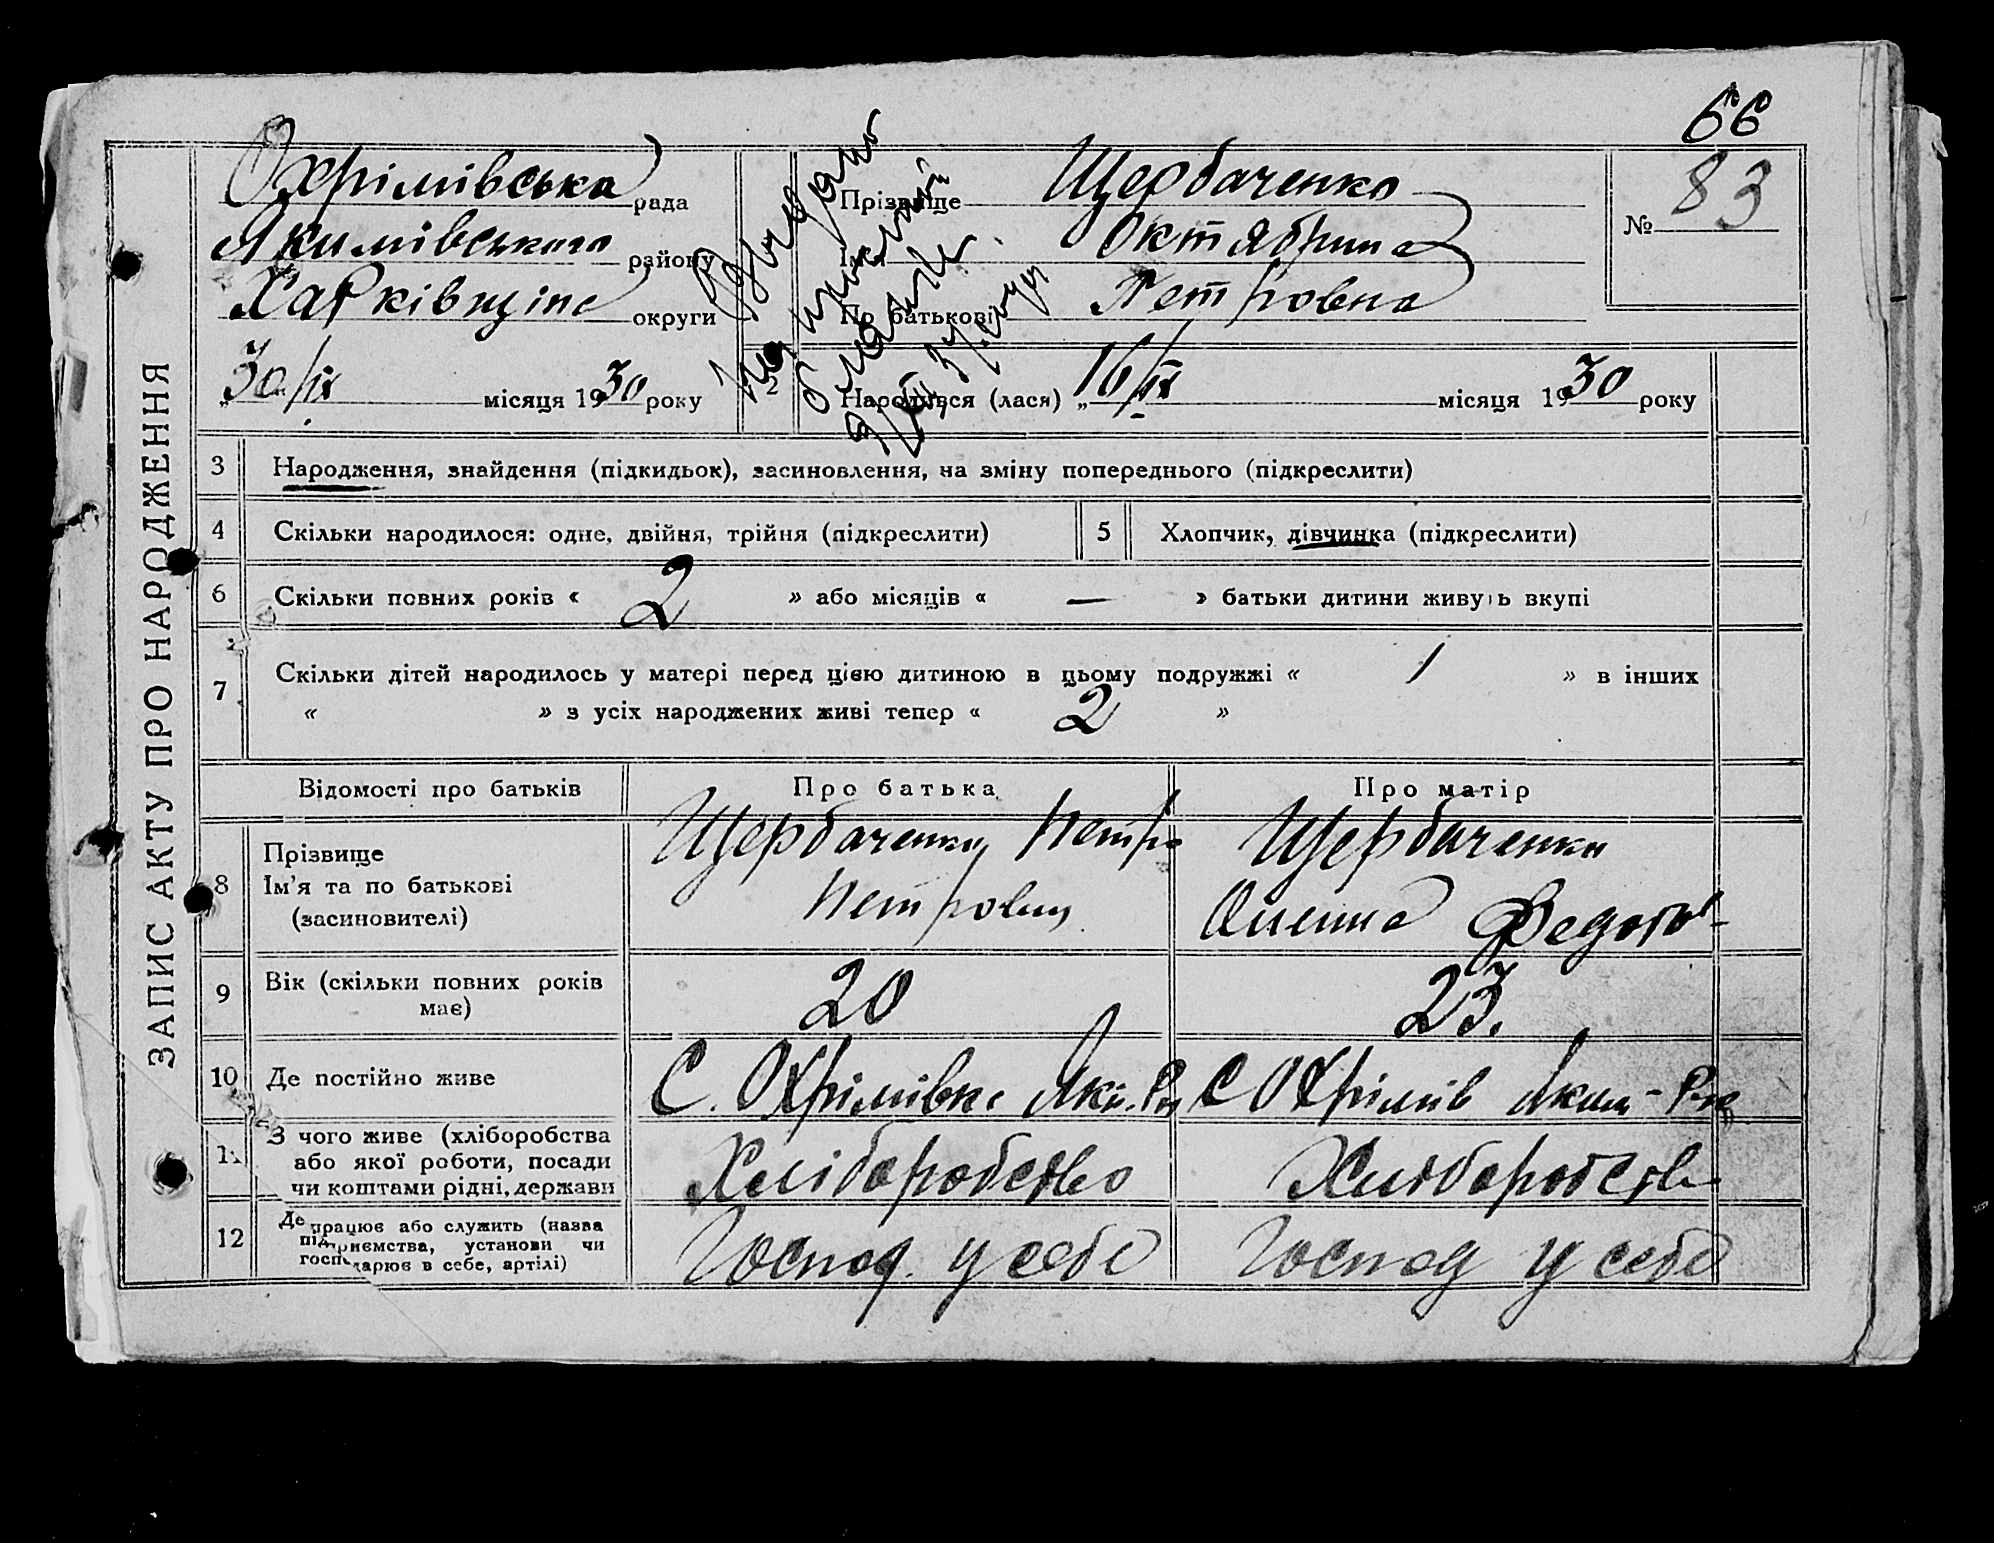 66
Охрімівська рада
Якимівського району
Харківщіна округи
„30“/ІХ місяця 1930 року
Прізвище Щербаченко
Ім'я Октябрина
По батькові Петровна
№ 83
2 Народився (лася) „16/ІХ місяця 1930 року
ЗАПИС АКТУ ПРО НАРОДЖЕННЯ
3 Народження, знайдення (підкидьок), засиновлення, на зміну попереднього (підкреслити)
4 Скільки народилося: одне, двійня, трійня (підкреслити)
5 Хлопчик, дівчинка (підкреслити)
6 Скільки повних років « 2 » або місяців « — » батьки дитини живуть вкупі
7 Скільки дітей народилось у матері перед цією дитиною в цьому подружжі « 1 » в інших
« » з усіх народжених живі тепер « 2 »
Відомості про батьків Про батька Про матір
8 Прізвище
Ім'я та по батькові
(засиновителі)
Щербаченко Петро
Петрович
Щербаченко
Олена Федотов-
9 Вік (скільки повних років
має)
20
23.
10 Де постійно живе
С. Охрімівка Яки. Рн
С Охрімів Яким-Р-не
11 З чого живе (хліборобства
або якої роботи, посади
чи коштами рідні, держави
Хліборобство
Хліборобство
12 Де працює або служить (назва
підприємства, установи чи
господарює в себе, артілі)
Господ. у себе
Господ у себе